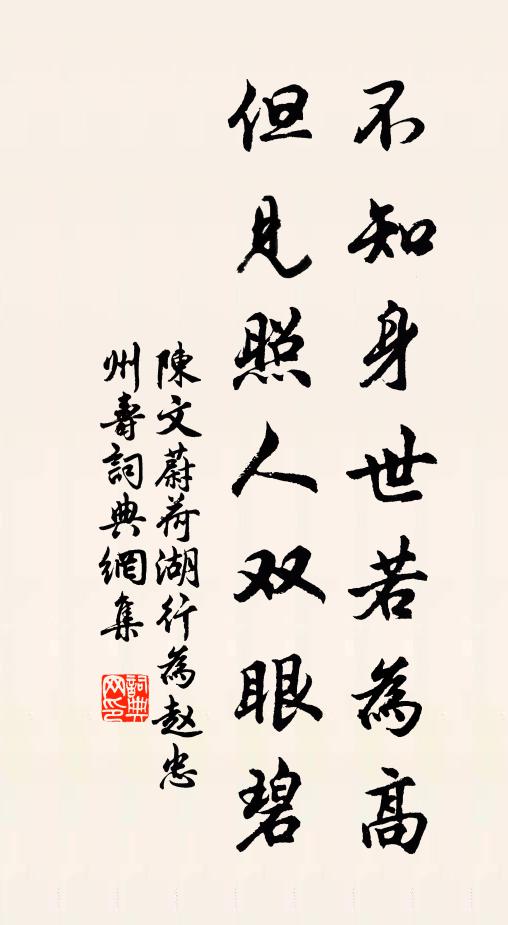 不知身世若為高
但見照人双眼碧
陳文蔚荷湖行為赵忠
州壽詞典網集
詞典网印